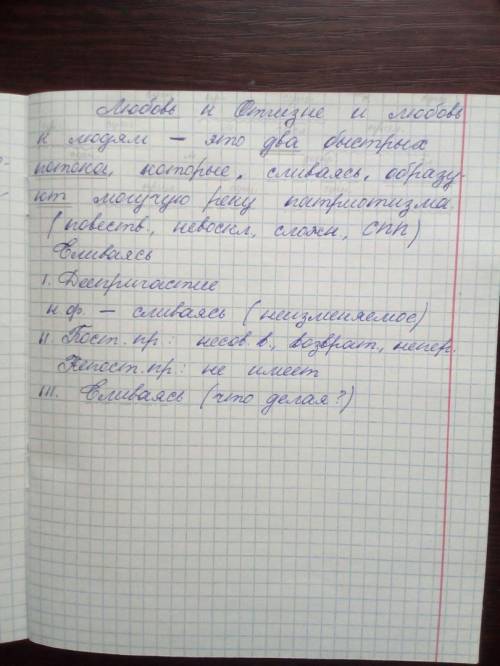 Любовь к Отчизне и любовь
к людям – это два быстрых
потока, которые, сливаясь, образу-
ют могучую реку патриотизма.
(повеств., невоскл, сложн, СПП)
Сливаясь
I. Деепричастие
н.ф. – сливаясь (неизменяемое)
II. Пост. пр: несов. в., возврат., непер.
Непост. пр: не имеет
III. Сливаясь (что делая?)